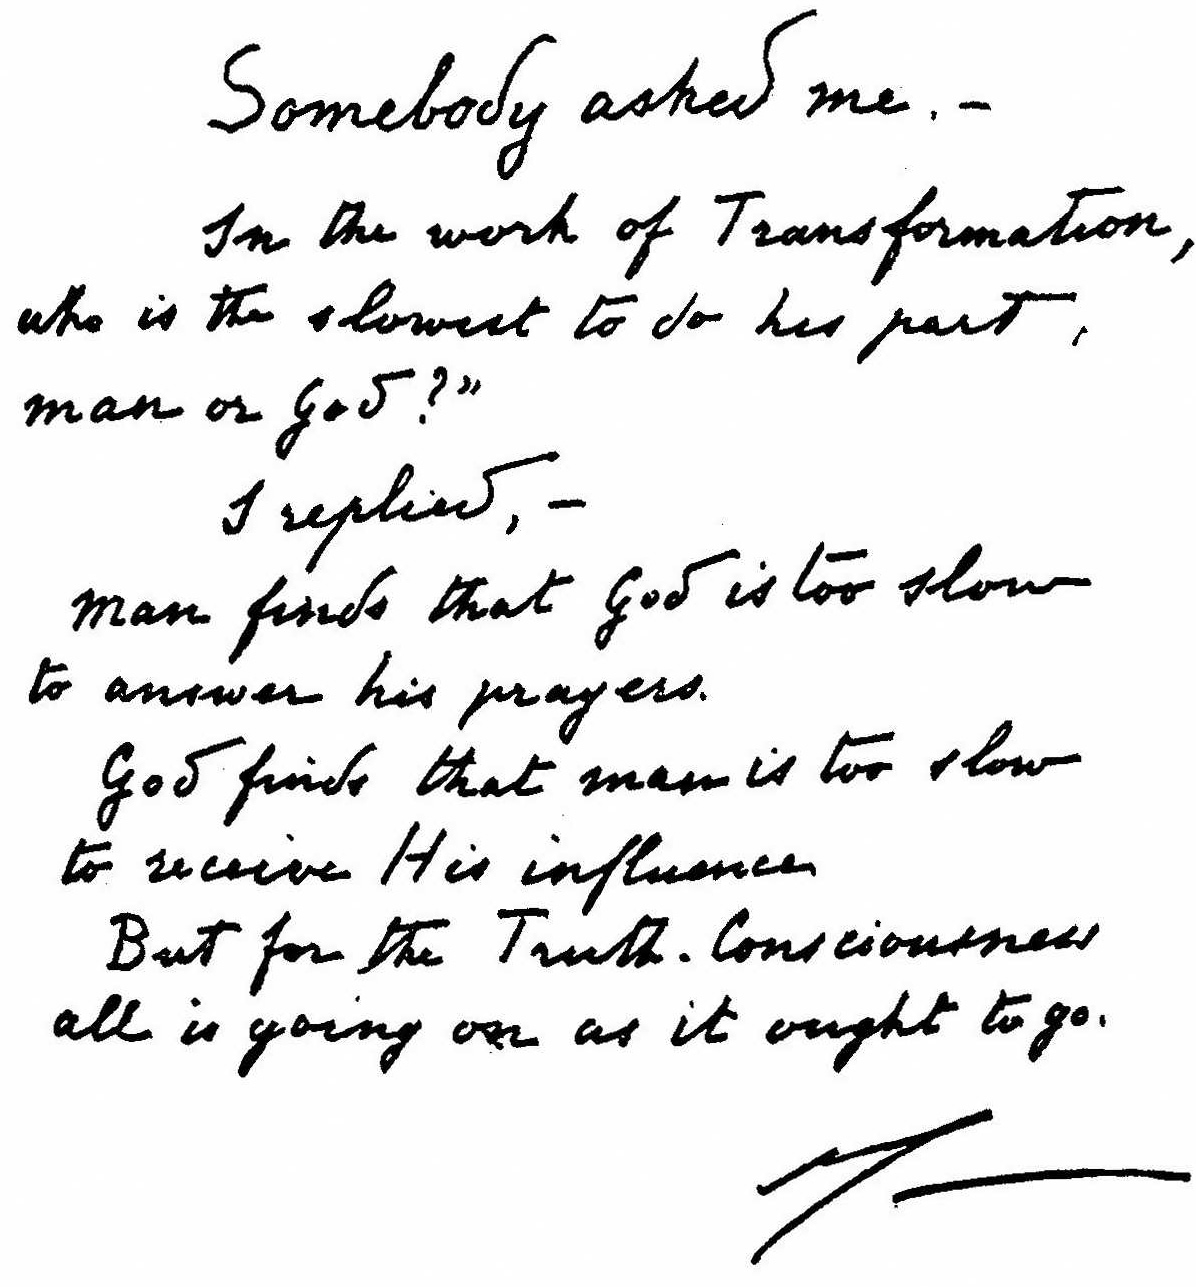 Somebody asked me. –
In the work of Transformation,
who is the slowest to do his part,
man or God?"
I replied, –
Man finds that God is too slow
to answer his prayers.
God finds that man is too slow
to receive His influence
But for the Truth-Consciousness
all is going on as it ought to go.